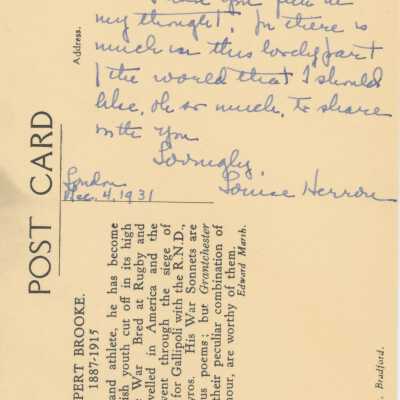 my thought. For there is
much in this lovely part
of the world that I should
like, oh so much, to share
with you
Lovingly,
Louise Herron
London
Dec. 4, 1931
Address.
POST CARD
PERT BROOKE.
1887-1915
and athlete, he has become
ish youth cut off in its high
War Bred at Rugby and
velled in America and the
vent through the siege of
for Gallipoli with the R.N.D.,
yros. His War Sonnets are
us poems; but Grantchester
their peculiar combination of
nour, are worthy of them.
Edward Marsh.
, Bradford.